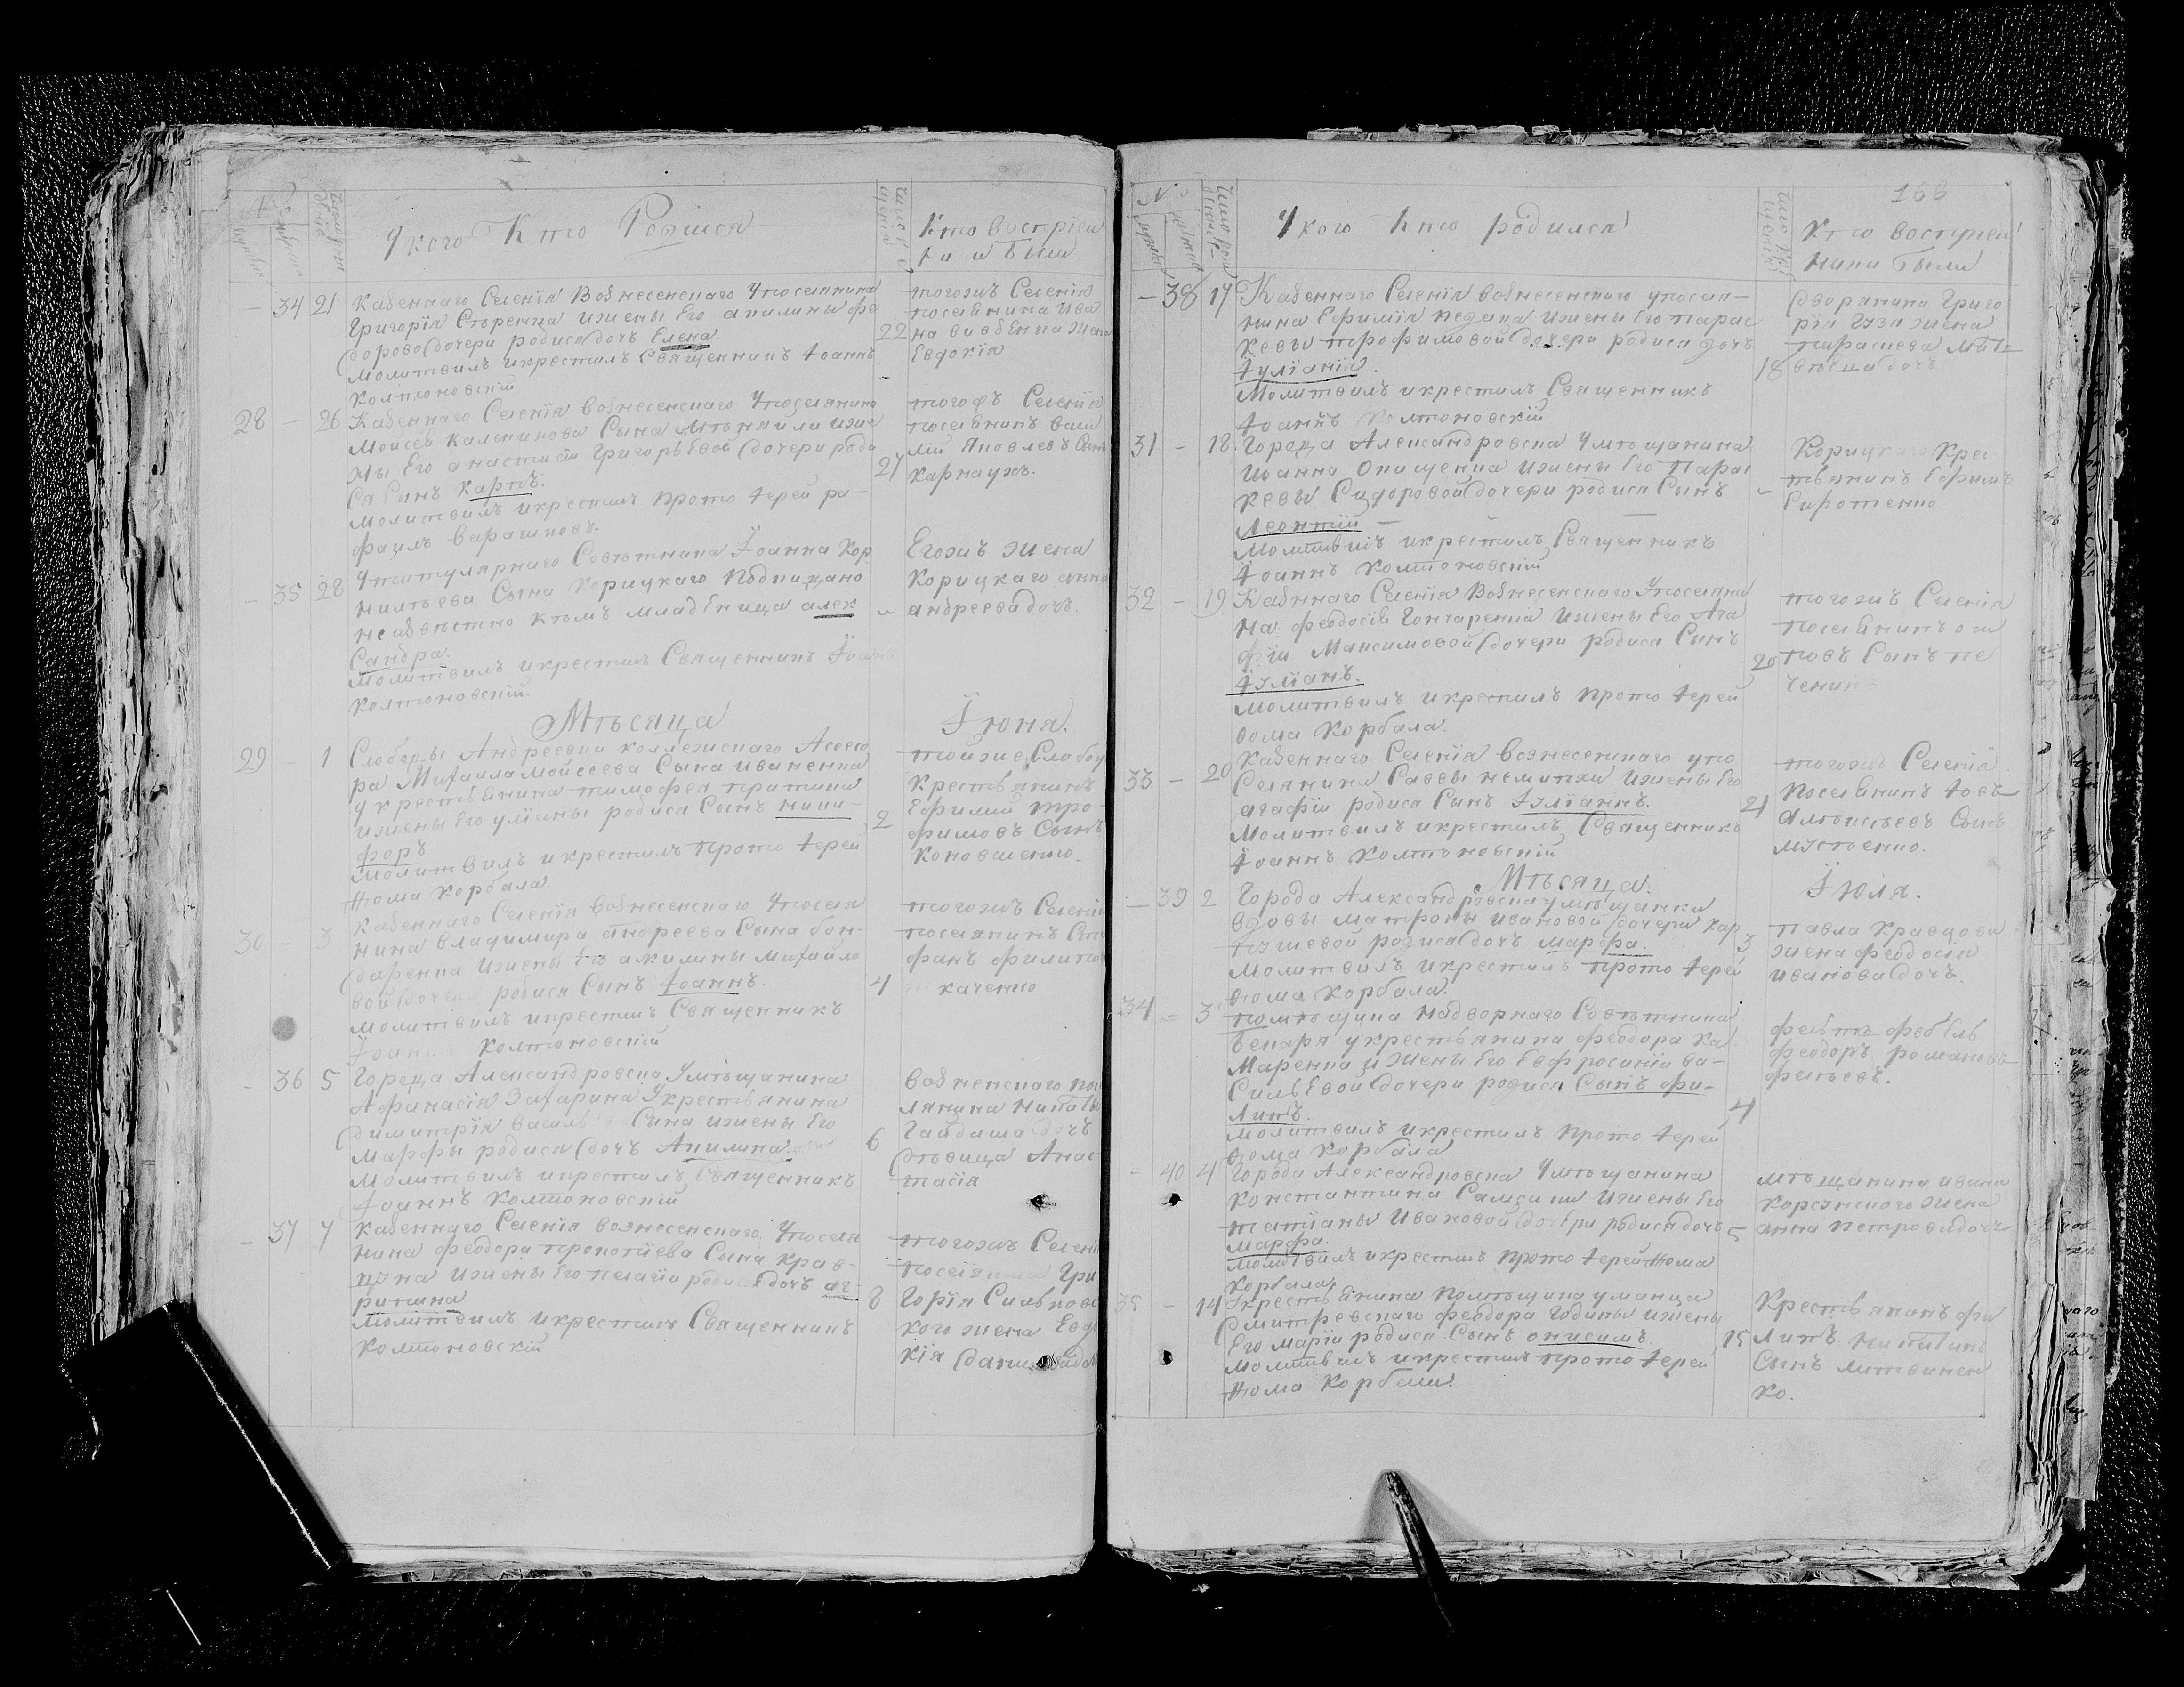 У кого Кто Родился
Кто Восприем
ни и Были
34 21 Казеннаго Селенїя Вознесенскаго Упоселянина
Григорїя Сѣренка ижены Его акилины фе
дорово дочери родися дочь Елена
Молитвилъ икрестилъ Священникъ Іоаннъ
Колтоновскій
22
тогожъ Селенїя
поселянина Ива
на жена
Евдокїя
28 – 26 Казеннаго Селенїя вознесенскаго Упоселянина
Моисея Каленикова Сына ижe
ны Его анастасїи Григорьевой дочери роди
ся Сынъ Карпъ.
Молитвилъ икрестилъ прото іерей ра-
фаилъ Варашковъ.
27
тогожъ Селенїя
поселянинъ Васи
лій Яковлевъ Сынъ
Карнаухъ.
– 35 28 Утитулярнаго Совѣтника Іоанна Кор
нилѣева Сына Корицкаго Подкидано
неизвѣстно кѣмъ младѣница алек
Сандра.
Молитвилъ икрестилъ Священникъ Іоаннъ
Колтоновскій.
Егожъ жена
Корицкаго анна
андреева дочь.
Мѣсяца Іюня.
29 – 1 Слободы Андреевки коллежскаго Асесо
ра Михаила Мойсеева Сына иваненка
укрестьянина тимофея
ижены Его улїаны родися Сынъ ники-
форъ
Молитвилъ икрестилъ Прото іерей
Ѳома Корбала.
2
тойже Слобод
Крестьянинъ
Ефимій тро-
фимовъ Сынъ
Коноваленко.
30 – 3 Казеннаго Селенїя вознесенскаго Упоселя
нина владимира андреева Сына бон-
даренка ижены Его акилины Михайло
вой дочери родися Сынъ Іоаннъ.
молитвилъ икрестилъ Священникъ
Іоаннъ Колтоновскій
4
тогожъ Селенїя
поселянинъ Сте
фанъ филипо
ткаченко
– 36 5 Города Александровска Умѣщанина
Афанасїя Захарина Укрестьянина
димитрїя Василь Сына ижены Его
Марфы родися дочь Акилина
Молитвилъ икрестилъ Священникъ
Іоаннъ Колтоновскій
6
вознненскаго посе
лянина никиты
Гайдаша дочь
дѣвица Анас
тасїя
– 37 7 Казеннаго Селенїя вознесенскаго Упоселя
нина феодора прокопїева Сына Крав-
цуна ижены Его пелагїи родися дочь аг-
рипина
Молитвилъ икрестилъ Священникъ
Колтоновскій
8
тогожъ Селенїя
поселянина Гри
Горїя Сильков
кого жена Евдо
кїя дани
168
У кого Кто родился
Кто восприем
ники Были
– 38 17 Казеннаго Селенїя вознесенскаго упоселя-
нина Ефимїя ижены Его парас
Кевы трофимовой дочери родися дочь
Іулїанїя.
Молитвилъ икрестилъ Священникъ
Іоаннъ Колтоновскій
18
дворянина Григо
рїя жена
параскева Мат
вѣева дочь
31 – 18 Города Александровска Умѣщанина
Иоанна Онищенка ижены Его Парас
Кевы Сидоровой дочери родися Сынъ
Леонтій –
Молитвилъ икрестилъ Священникъ
Іоаннъ Колтоновскій
Корицкаго Крес
тьянинъ Ефимъ
Сиротенко
32 – 19 Казеннаго Селенїя Вознесенскаго Упоселяни
на феодосїя Гончаренка ижены Его Ага
фїи Максимовой дочери родися Сынъ
Іулїанъ.
Молитвилъ икрестилъ прото іерей
Ѳома Корбала.
20
тогожъ Селенїя
Поселянинъ оси
повъ Сынъ пе
ченик
33 – 20 Казеннаго Селенїя вознесенскаго упо
Селянина Саввы ижены Его
агафїи родися Сынъ Іулїаннъ.
Молитвилъ икрестилъ Священникъ
Іоаннъ Колтоновскій
21
тогожъ Селенїя
Поселянинъ Іовъ
Алексѣевъ Сынъ
Мусіенко.
Мѣсяца. Іюля.
– 39 2 Города Александровска умѣщанки
вдовы Матроны ивановой дочери Кар
пушевой родися дочь Марфа.
Молитвилъ икрестилъ прото іерей
Ѳома Корбала.
3
Павла Кравцова
жена феодосїя
иванова дочь.
34 – 3 помѣщика надворнаго Совѣтника
Бекаря укрестьянина феодора Ка
Маренка и Жены Его Евфросинїи ва-
Сильевой дочери родися Сынъ фи-
липъ.
Молитвилъ икрестилъ прото іерей
Ѳома Корбала
4
фельтъ фебѣль
феодоръ романовъ
– 40 4 Города Александровска Умѣщанина
Константина ижены Его
татїаны Ивановой дочери родися дочь
Марфа.
Молитвилъ икрестилъ прото іерей Ѳома
Корбала.
5
мѣщанина ивана
Корсунского жена
анна петрова дочь
35 – 14 Укрестьянина помѣщика уманца
дмитревскаго феодора Годины ижены
Его Марїи родися Сынъ онисимъ.
Молитвилъ икрестилъ прото іерей
Ѳома Корбала.
15
Крестьянинъ фи
липъ никитинъ
Сынъ литвинен
ко.